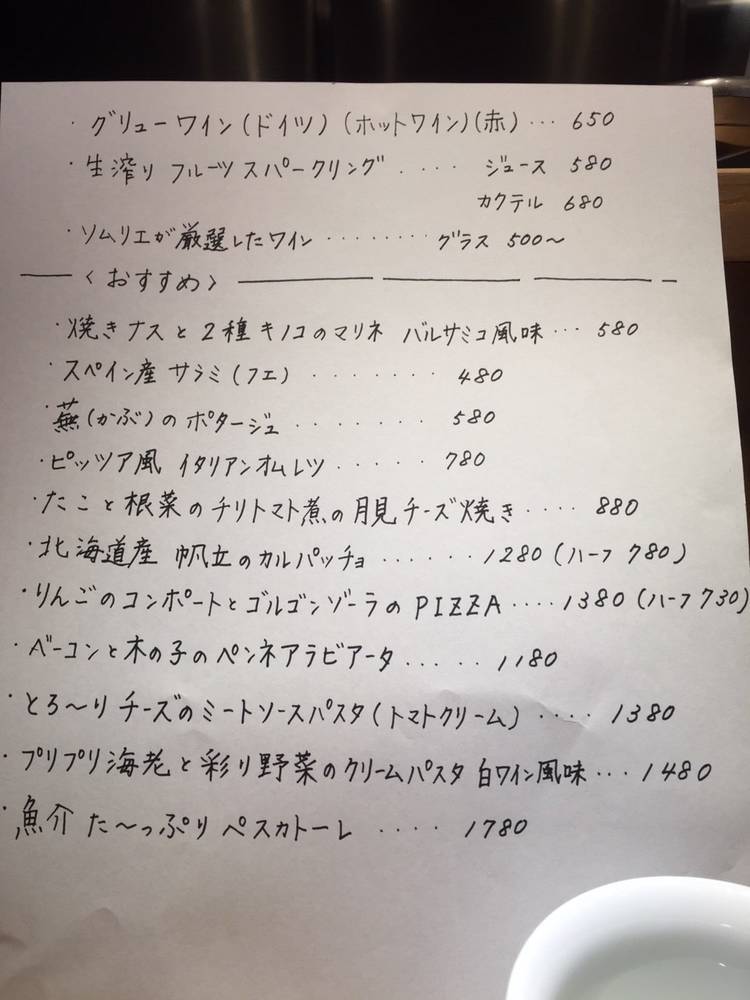 ・グリューワイン(ドイツ)(ホットワイン)(赤)… 650
・生搾り フルーツ スパークリング ‥‥ ジュース 580
カクテル 680
・ソムリエが厳選したワイン ‥‥‥‥ グラス 500〜
〈おすすめ〉
・焼きナスと2種キノコのマリネ バルサミコ風味… 580
・スペイン産 サラミ(フエ) ‥‥‥‥ 480
・蕪(かぶ)のポタージュ ‥‥‥‥ 580
・ピッツア風 イタリアンオムレツ ‥‥‥ 780
・たこと根菜のチリトマト煮の月見チーズ焼き ‥‥ 880
・北海道産 帆立のカルパッチョ ‥‥‥ 1280(ハーフ 780)
・りんごのコンポートとゴルゴンゾーラのPIZZA ‥‥ 1380(ハーフ 730)
・ベーコンと木の子のペンネアラビアータ ‥‥‥ 1180
・とろ〜りチーズのミートソースパスタ(トマトクリーム) ‥‥ 1380
・プリプリ海老と彩り野菜のクリームパスタ 白ワイン風味… 1480
・魚介 た〜っぷり ペスカトーレ ‥‥ 1780